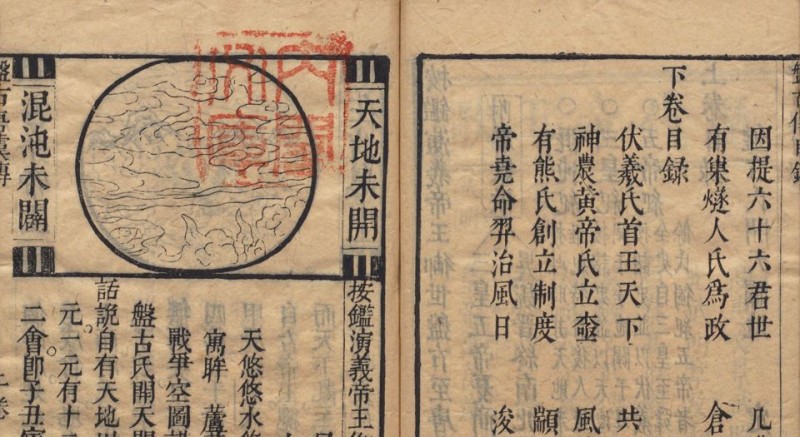 因提六十六君世 几
有巢燧人氏爲政 倉
下卷目錄
伏羲氏首王天下 共
神農黃帝氏立 風
有熊氏創立制度 顓
帝堯命羿治風日 浚
天地未開
混沌未闢
按鑑演義帝王
天悠悠水悠
寓眸 蘆
戰爭空圖
盤古氏開天
話說自有天地
元一元有十
二會卽子丑